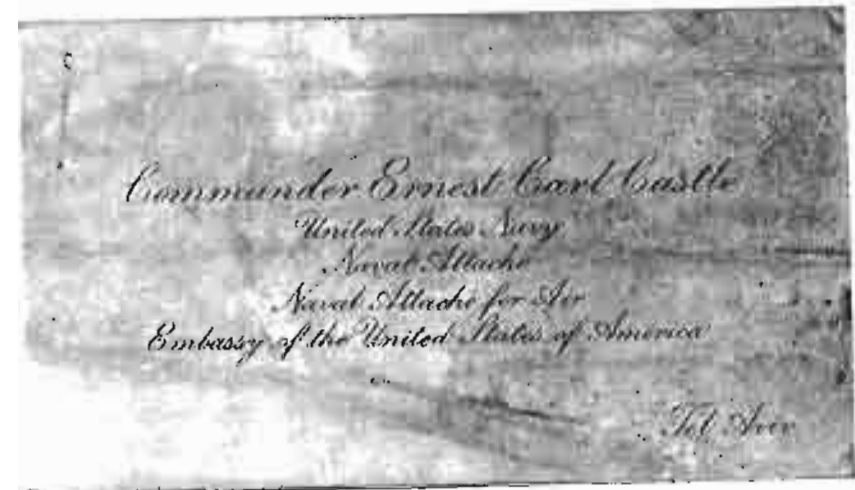 Commander Ernest Carl Castle
United States Navy
Naval Attache
Naval Attache for Air
Embassy of the United States of America
Tel Aviv